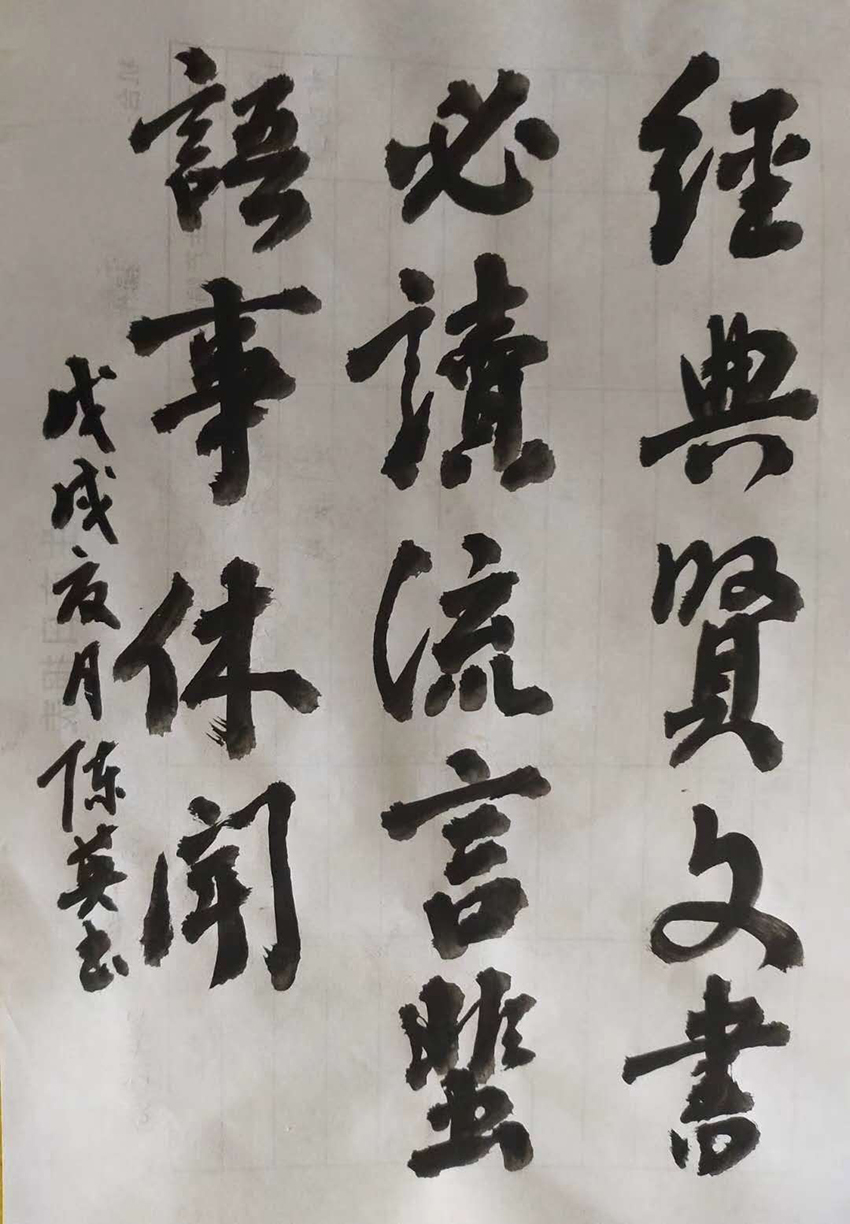 經典賢文書
必讀流言蜚
語事休聞
戊戌夏月陈英书